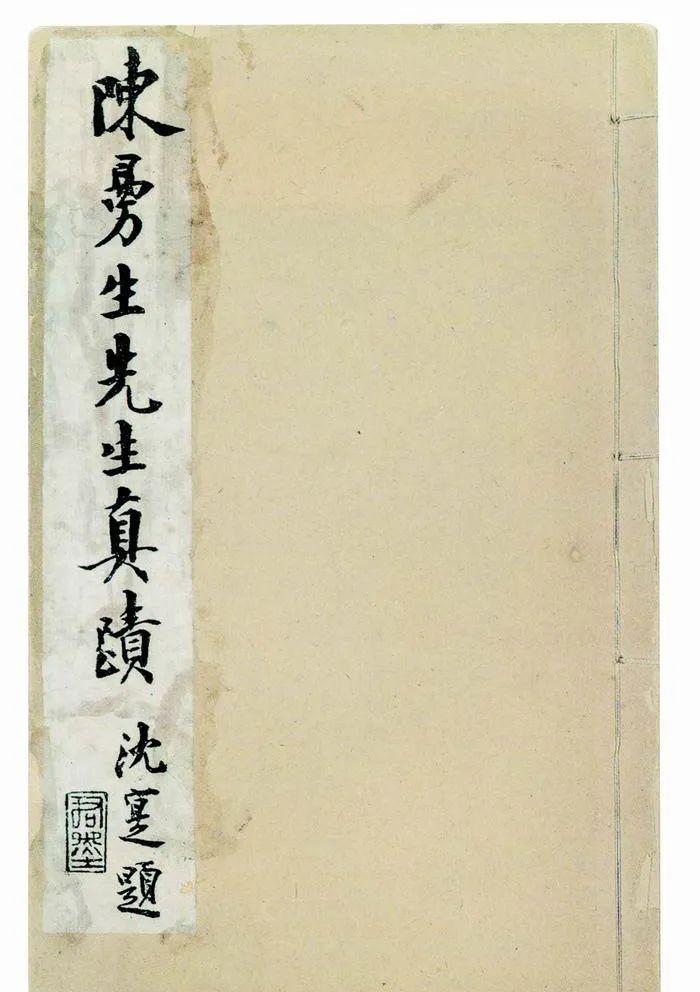 陳曼生先生真蹟
沈寔題